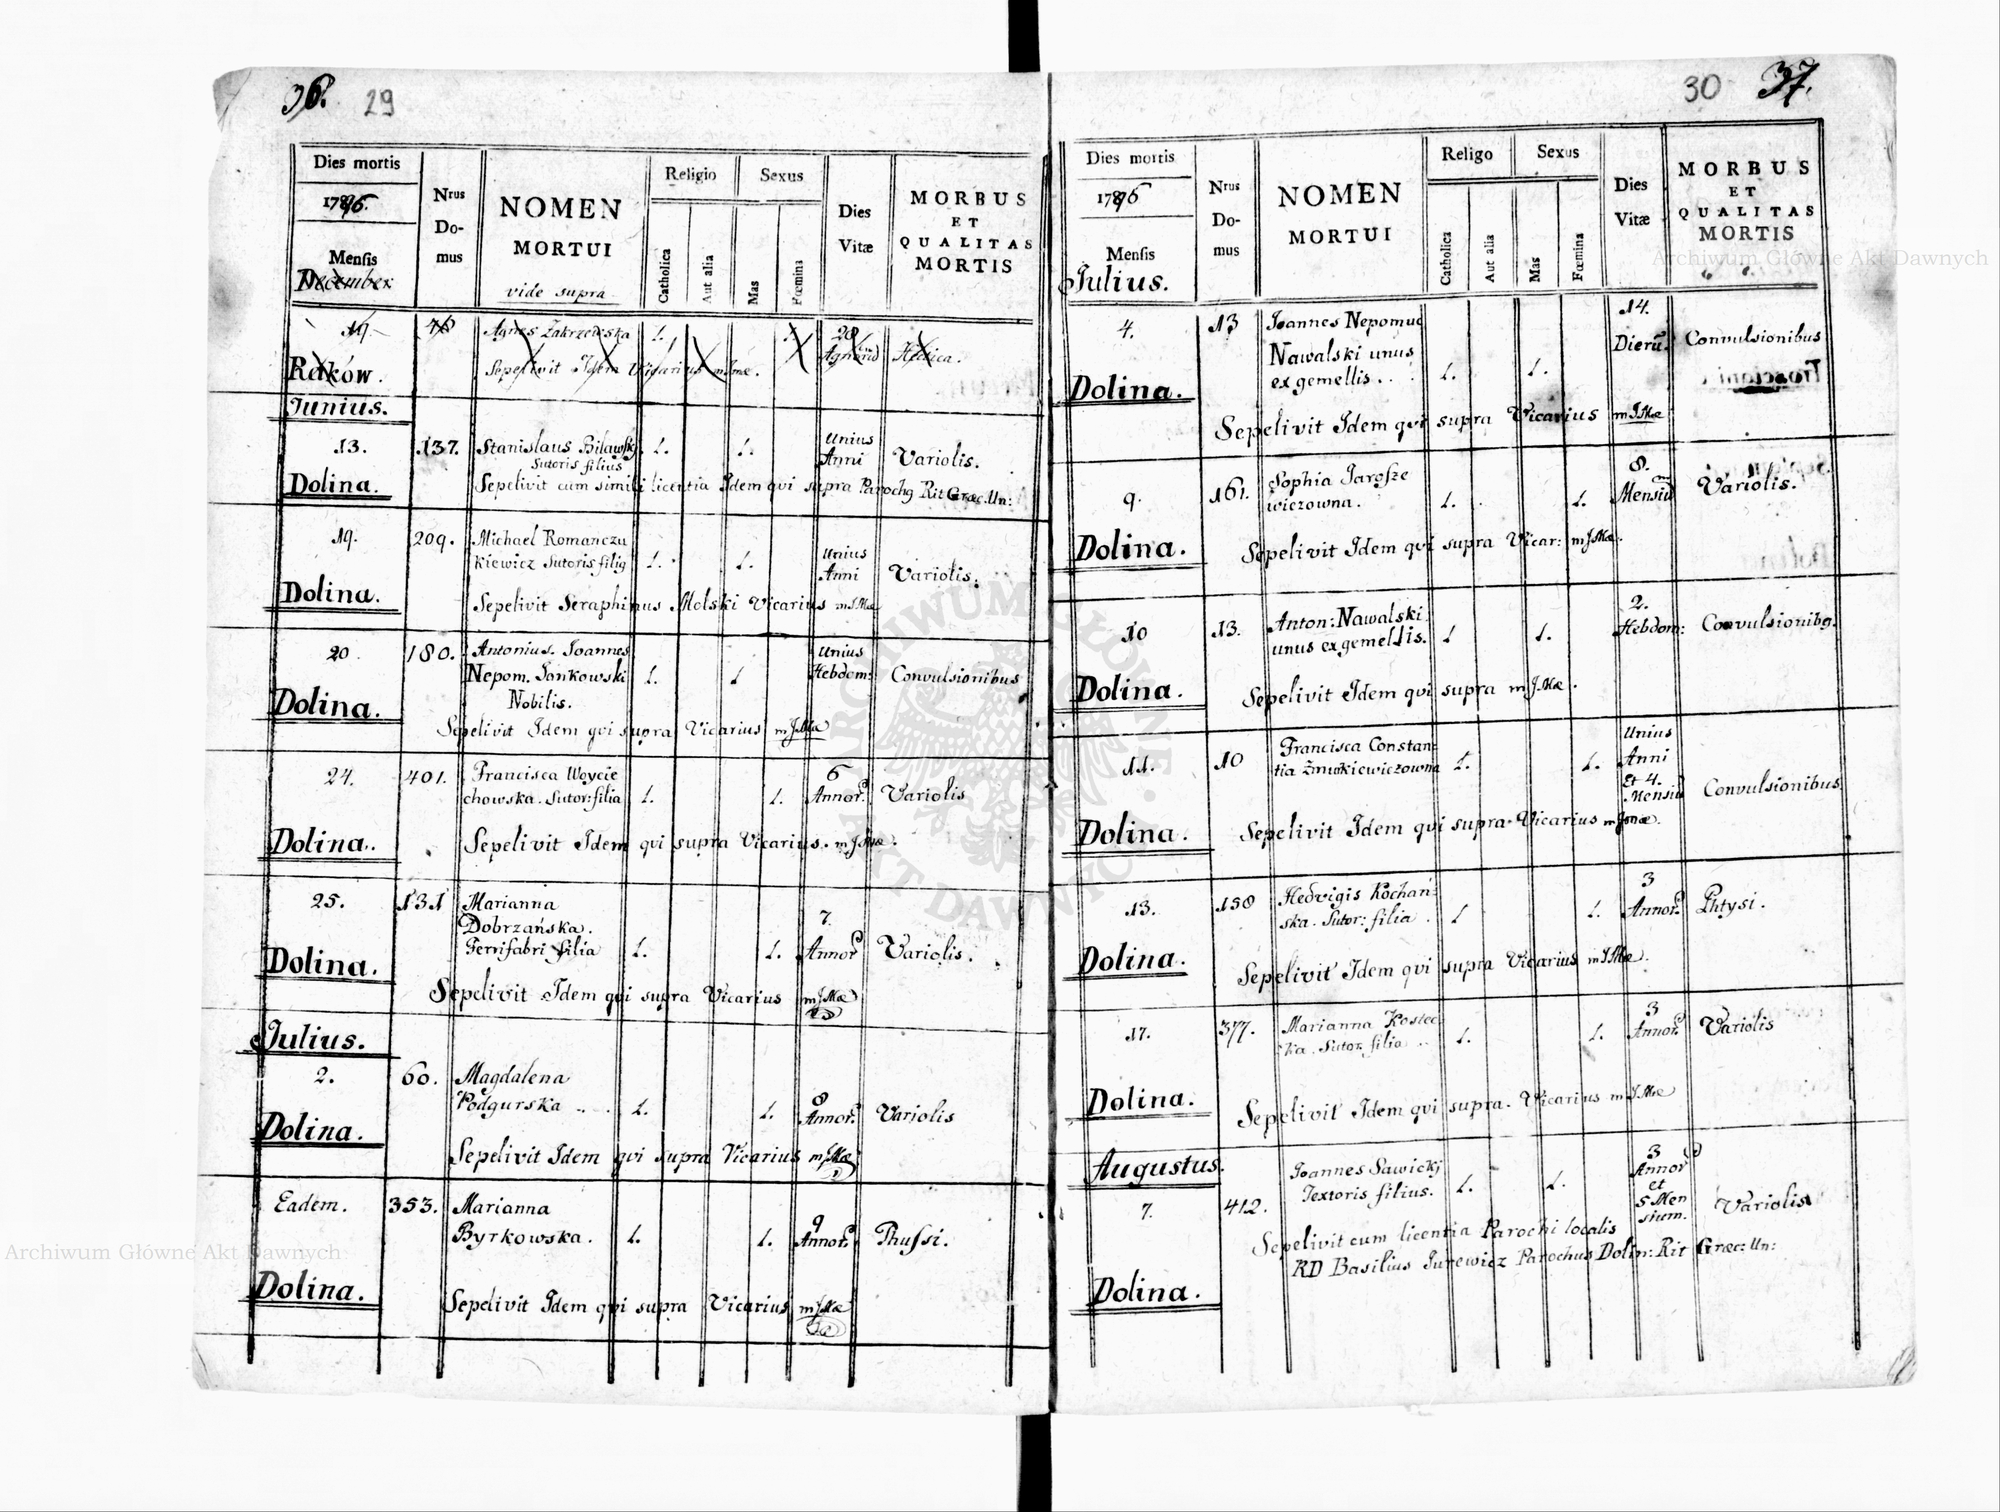 36. 29
Dies mortis
1796.
Mensis
December
Nrus
Do-
mus
NOMEN
MORTUI
vide supra
Religio
Catholica
Aut alia
Sexus
Mas
Fœmina
Dies
Vitæ
MORBUS
ET
QUALITAS
MORTIS
19 48 Agnes Zakrzewska 1. 1. 28
Raków. Sepelivit Idem Vicarius mpmæ. Hectica.
Junius.
13. 137. Stanislaus Bilawski 1. 1. Unius
Sutoris filius Anni Variolis.
Dolina. Sepelivit cum simili licentia Idem qvi supra Parochg Rit Græc. Un:
19. 209. Michael Romanczu
kiewicz Sutoris filig 1. 1. Unius
Anni Variolis.
Dolina. Sepelivit Seraphinus Molski Vicarius
20 180. Antonius. Joannes Unius
Nepom. Jankowski 1. 1 Hebdom: Convulsionibus
Dolina. Nobilis.
Sepelivit Idem qvi supra Vicarius
24. 401. Francisca Woycie 6
chowska. Sutor: filia 1. 1. Annor. Variolis
Dolina. Sepelivit Idem qvi supra Vicarius.
25. 131 Marianna
Dobrzańska. 7.
Ferrifabri filia 1. 1. Annor Variolis.
Dolina.
Sepelivit Idem qvi supra Vicarius
Julius.
2. 60. Magdalena
Podgurska 1. 1. 8
Annor. Variolis
Dolina.
Sepelivit Idem qvi supra Vicarius
Eadem. 353. Marianna 9
Byrkowska. 1. 1. Annor. Thussi.
Dolina.
Sepelivit Idem qvi supra Vicarius
30 37.
Dies mortis
1796
Mensis
Julius.
Nrus
Do-
mus
NOMEN
MORTUI
Religo
Catholica
Aut alia
Sexus
Mas
Fœmina
Dies
Vitæ
MORBUS
ET
QUALITAS
MORTIS
4. 13 Joannes Nepomuc 14.
Nawalski unus Dierū. Convulsionibus
ex gemellis. 1. 1.
Dolina.
Sepelivit Idem qvi supra Vicarius
9 161. Sophia Jarosze 8.
wiczowna. 1. 1. Mensiu Variolis.
Dolina. Sepelivit Idem qvi supra Vicar:
10 13. Anton: Nawalski 2.
unus ex gemellis. 1 1. Hebdom: Convulsionibg.
Dolina. Sepelivit Idem qvi supra
11. 10 Francisca Constan- Unius
tia Żmukiewiczowna 1. 1. Anni
Et 4.
Mensiu Convulsionibus
Dolina. Sepelivit Idem qvi supra Vicarius
13. 158 Hedvigis Kochań- 3
ska. Sutor: filia 1 1. Annor. Phtysi.
Dolina. Sepelivit Idem qvi supra Vicarius
17. 377. Marianna Kostec 3
ka. Sutor. filia 1. 1. Annor. Variolis
Dolina. Sepelivit Idem qvi supra. Vicarius
Augustus. Joannes Sawickj 3
Textoris filius. 1. 1. Annor
7. 412. et
5 Men
sium. Variolis
Sepelivit cum licentia Parochi localis
RD Basilius Jurewicz Parochus Dolin: Rit Græc: Un:
Dolina.
Archiwum Główne Akt Dawnych
Archiwum Główne Akt Dawnych
ARCHIWUM GŁÓWNE AKT DAWNYCH